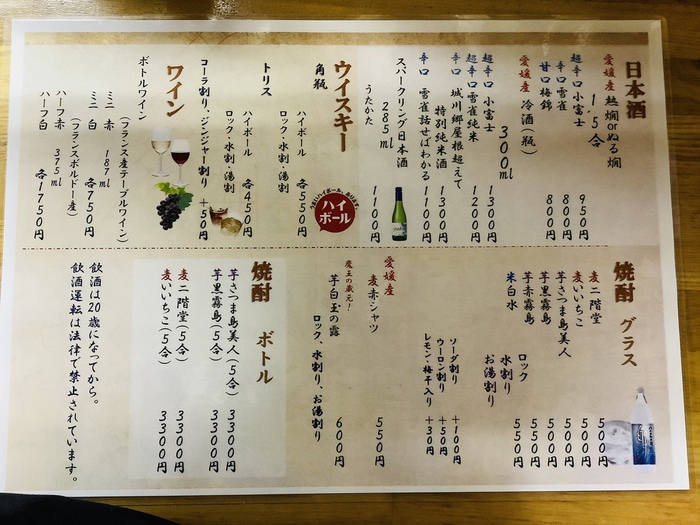 日本酒
愛媛産 熱燗orぬる燗
1.5合
超辛口 小富士 950円
辛口 雪雀 800円
甘口 梅錦 800円
愛媛産 冷酒(瓶)
300ml
超辛口 小富士 1300円
超辛口 雪雀純米 1200円
辛口 城川郷屋根超えて
特別純米酒 1300円
辛口 雪雀話せばわかる 1100円
スパークリング日本酒
285ml
うたかた 1100円
ウイスキー
角瓶
ハイボール 各550円
ロック・水割・湯割
うまいハイボール、あります。
ハイボール
トリス
ハイボール 各450円
ロック・水割・湯割
コーラ割り、ジンジャー割り +50円
ワイン
ボトルワイン
(フランス産テーブルワイン)
ミニ 赤 187ml
ミニ 白 各750円
(フランスボルドー産)
ハーフ赤 375ml
ハーフ白 各1750円
焼酎 グラス
麦 二階堂 500円
麦 いいちこ 500円
芋 さつま島美人 500円
芋 黒霧島 500円
芋 赤霧島 550円
米 白水 550円
ロック
水割り
お湯割り
ソーダ割り +100円
ウーロン割り +50円
レモン・梅干入り +30円
愛媛産
麦 赤シャツ 550円
魔王の蔵元!
芋 白玉の露 600円
ロック、水割り、お湯割り
焼酎 ボトル
芋 さつま島美人(5合) 3300円
芋 黒霧島(5合) 3300円
麦 二階堂(5合) 3300円
麦 いいちこ(5合) 3300円
飲酒は20歳になってから。
飲酒運転は法律で禁止されています。